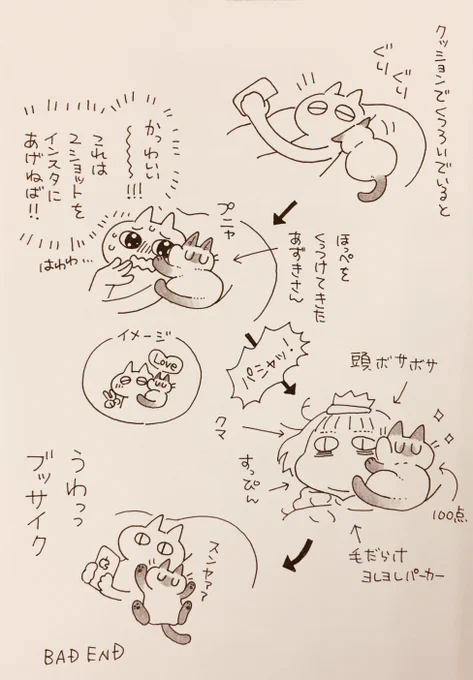 クッションでくつろいでいると
ぐり
ぐり
かっわいい
〜〜〜!!!
これは
2ショットを
インスタに
あげねば!!
はわわ…
プニャ
ほっぺを
くっつけてきた
あずきさん
イメージ
Love
パシャッ!
頭ボサボサ
クマ
すっぴん
100点
毛だらけ
ヨレヨレパーカー
うわっっ
ブッサイク
スンヤァァ
BAD END